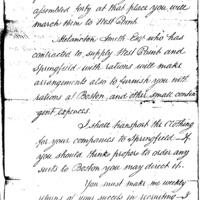 assembled forty at that place, you will
march them to West Point.
Melancton Smith Esqr who has
contracted to supply West Point and
Springfield with rations will make
arrangements also to furnish you with
rations at Boston, and other small contin
gent expences.
I shall transport the clothing
for your companies to Springfield. If
you should think proper to order any
suits to Boston you may direct it.
You must make me weekly
returns of your success in recruiting